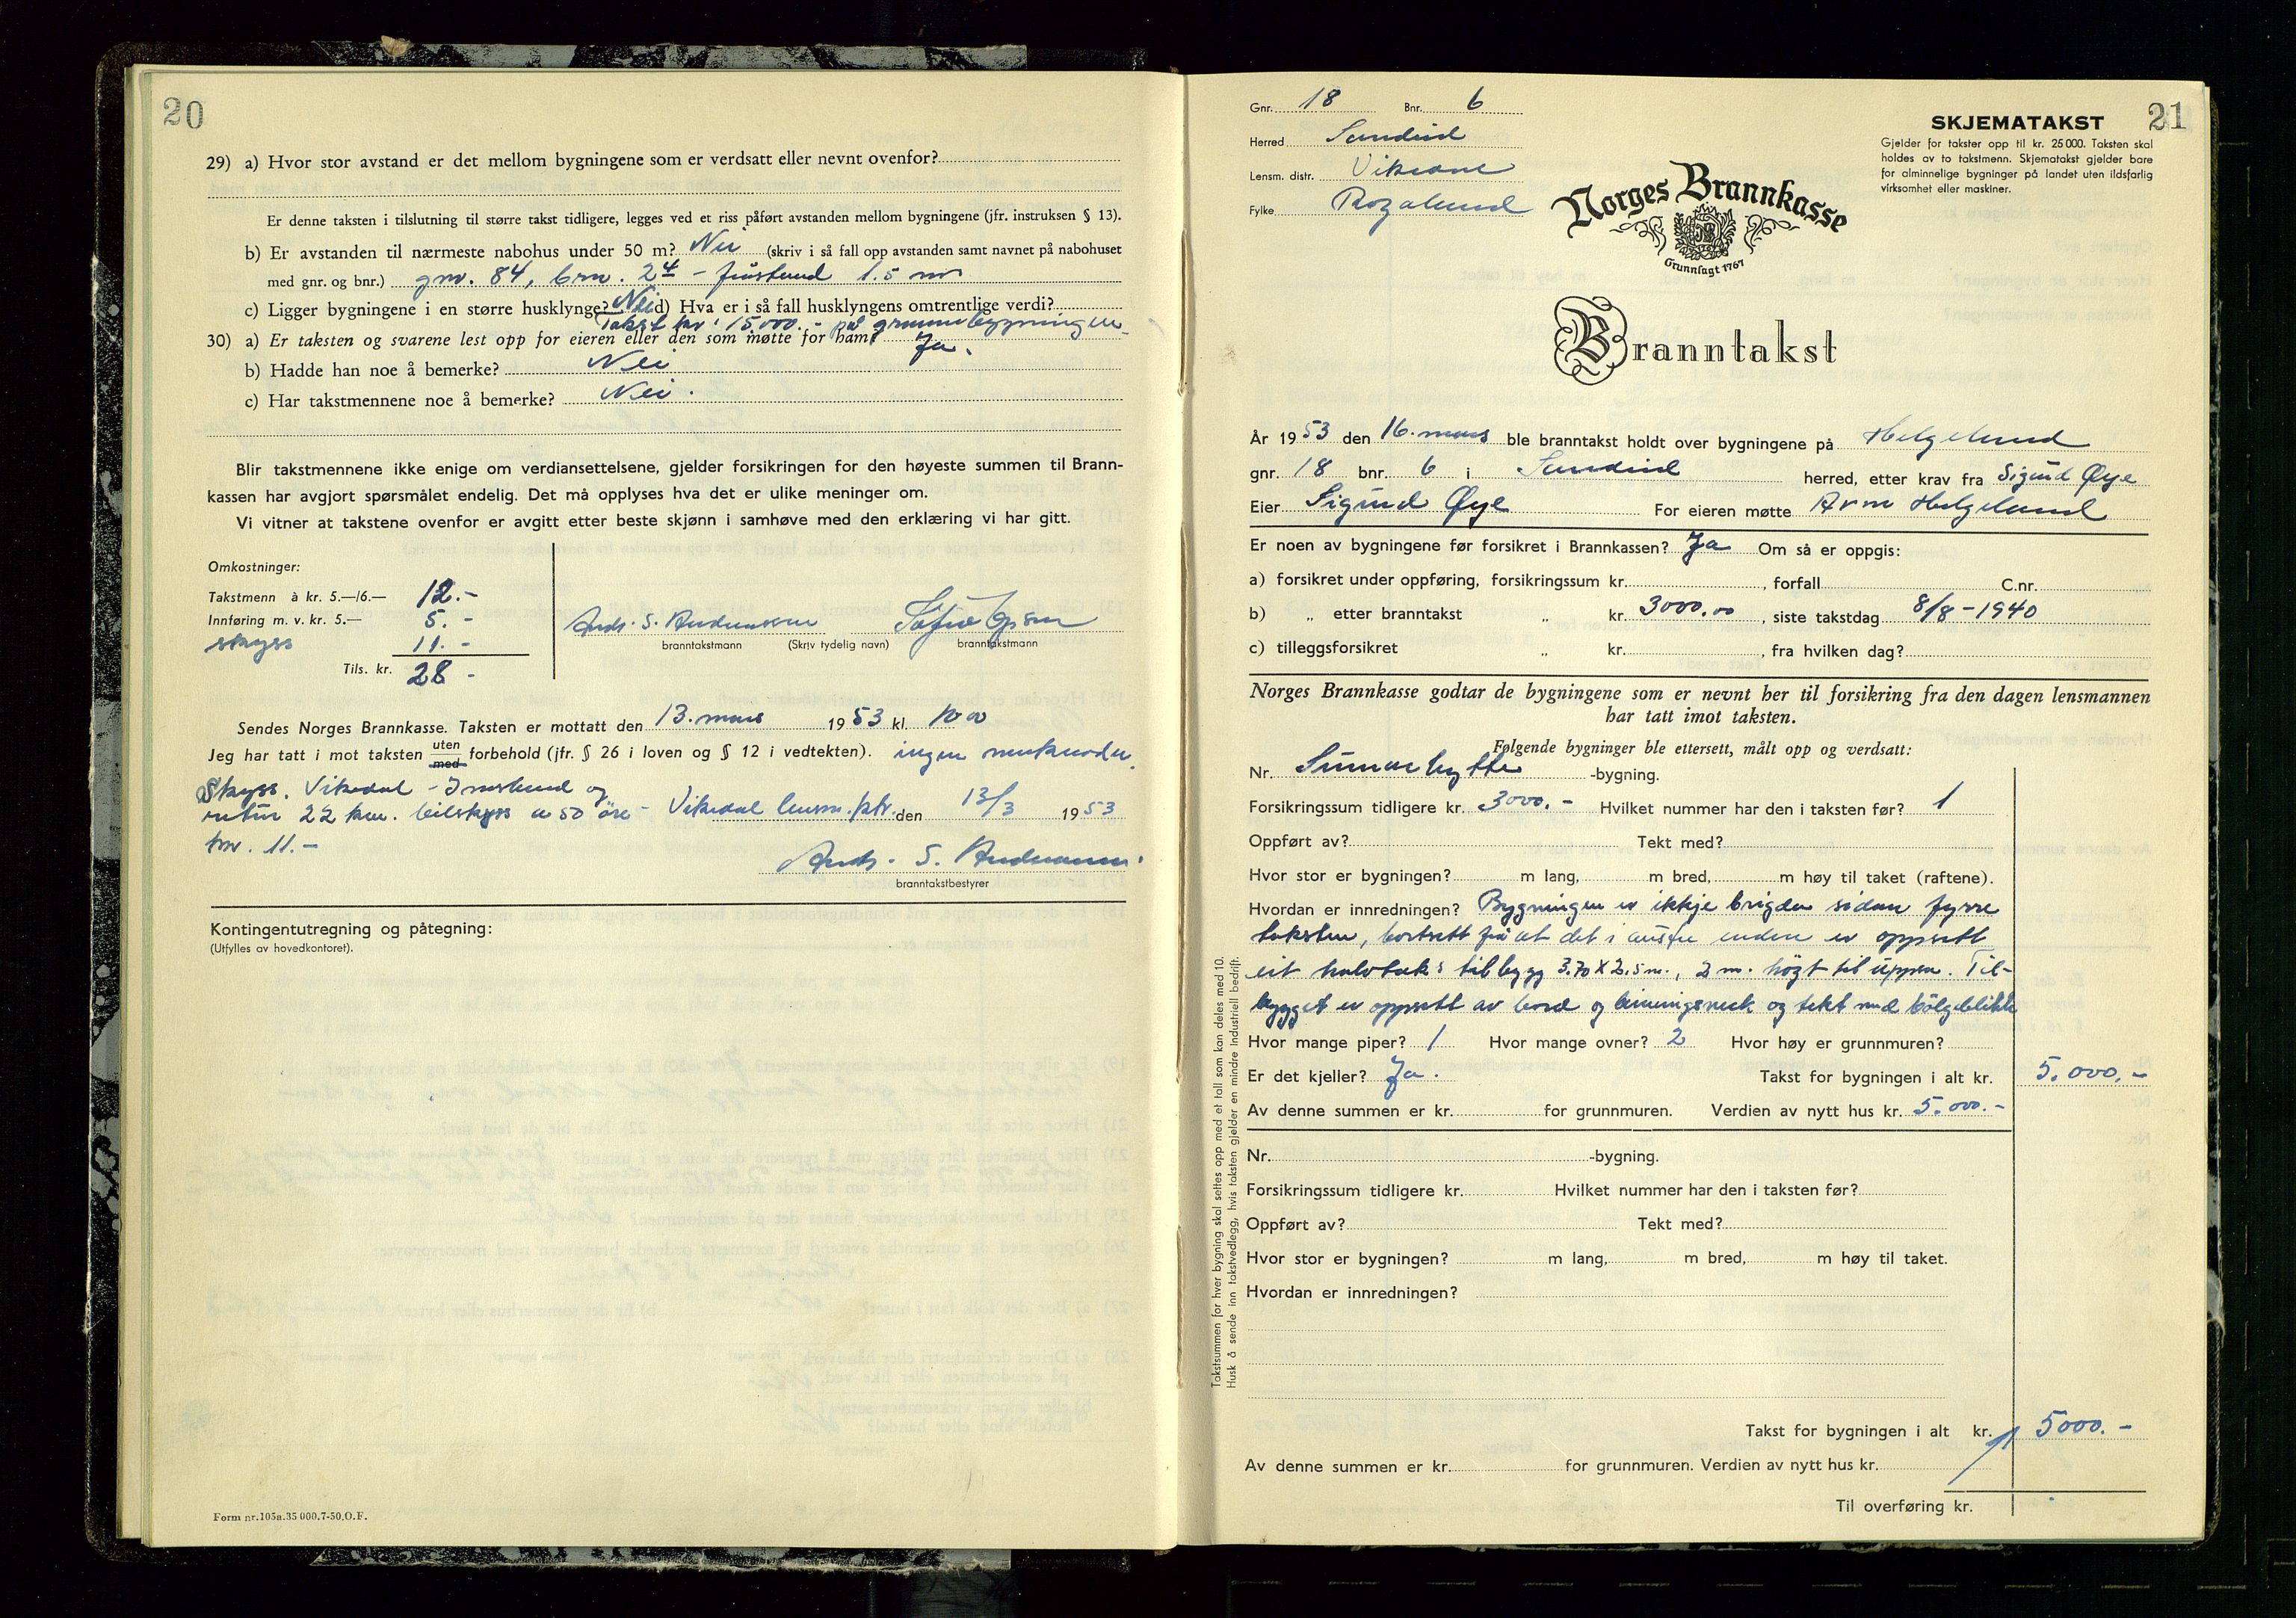 20
29) a) Hvor stor avstand er det mellom bygningene som er verdsatt eller nevnt ovenfor?
Er denne taksten i tilslutning til større takst tidligere, legges ved et riss påført avstanden mellom bygningene (jfr. instruksen § 13).
b) Er avstanden til nærmeste nabohus under 50 m? Nei (skriv i så fall opp avstanden samt navnet på nabohuset
med gnr. og bnr.) gnr. 84, brn. 24 - 1.5 m
c) Ligger bygningene i en større husklynge? Nei d) Hva er i så fall husklyngens omtrentlige verdi?
Takst kr. 15000.- på grannebygningen
30) a) Er taksten og svarene lest opp for eieren eller den som møtte for ham? Ja.
b) Hadde han noe å bemerke? Nei
c) Har takstmennene noe å bemerke? Nei.
Blir takstmennene ikke enige om verdiansettelsene, gjelder forsikringen for den høyeste summen til Brann-
kassen har avgjort spørsmålet endelig. Det må opplyses hva det er ulike meninger om.
Vi vitner at takstene ovenfor er avgitt etter beste skjønn i samhøve med den erklæring vi har gitt.
Omkostninger:
Takstmenn à kr. 5.—/6.— 12.-
Innføring m. v. kr. 5.— 5.-
skyss 11.-
Tils. kr. 28 -
Ands. S. Andreassen
branntakstmann (Skriv tydelig navn) branntakstmann
Sendes Norges Brannkasse. Taksten er mottatt den 13. mars 1953 kl. 10 00
Jeg har tatt i mot taksten uten
med forbehold (jfr. § 26 i loven og § 12 i vedtekten). ingen merknader.
Skyss. Vikedal - Imslund og
retur 22 km. bilskyss a 50 öre - Vikedal lensm.ktr. den 13/3 1953
kr. 11.-
Ands. S. Andreassen
branntakstbestyrer
Kontingentutregning og påtegning:
(Utfylles av hovedkontoret).
Form nr.105a.35 000.7-50.O.F.
21
Gnr. 18 Bnr. 6
Herred Sandeid
Lensm. distr. Vikedal
Fylke Rogaland
SKJEMATAKST
Gjelder for takster opp til kr. 25 000. Taksten skal
holdes av to takstmenn. Skjematakst gjelder bare
for alminnelige bygninger på landet uten ildsfarlig
virksomhet eller maskiner.
Norges Brannkasse
Grunnlagt 1767
Branntakst
År 1953 den 16. mars ble branntakst holdt over bygningene på Helgelund
gnr. 18 bnr. 6 i Sandeid herred, etter krav fra Sigurd Øye
Eier Sigurd Øye For eieren møtte Arne Helgeland
Er noen av bygningene før forsikret i Brannkassen? Ja Om så er oppgis:
a) forsikret under oppføring, forsikringssum kr. , forfall C.nr.
b) „ etter branntakst „ kr. 3000.00, siste takstdag 8/8-1940
c) tilleggsforsikret „ kr. , fra hvilken dag?
Norges Brannkasse godtar de bygningene som er nevnt her til forsikring fra den dagen lensmannen
har tatt imot taksten.
Følgende bygninger ble ettersett, målt opp og verdsatt:
Nr. Sumarhytte -bygning.
Forsikringssum tidligere kr. 3000.- Hvilket nummer har den i taksten før? 1
Oppført av? Tekt med?
Hvor stor er bygningen? m lang, m bred, m høy til taket (raftene).
Hvordan er innredningen? Bygningen er ikkje brigda sidan fyrre
taksten, bortsett frå at det i austre enden er oppsett
eit halvtaks tilbygg 3.70 x 2.5 m., 2 m. högt til uppen. Til-
bygget er oppsett av bord og bindingsverk og tekt med bölgeblikk
Hvor mange piper? 1 Hvor mange ovner? 2 Hvor høy er grunnmuren?
Er det kjeller? Ja. Takst for bygningen i alt kr. 5.000.-
Av denne summen er kr. for grunnmuren. Verdien av nytt hus kr. 5.000.-
Nr. -bygning.
Forsikringssum tidligere kr. Hvilket nummer har den i taksten før?
Oppført av? Tekt med?
Hvor stor er bygningen? m lang, m bred, m høy til taket.
Hvordan er innredningen?
Takst for bygningen i alt kr. 5000.-
Av denne summen er kr. for grunnmuren. Verdien av nytt hus kr.
Til overføring kr.
Takstsummen for hver bygning skal settes opp med et tall som kan deles med 10.
Husk å sende inn takstvedlegg, hvis taksten gjelder en mindre industriell bedrift.